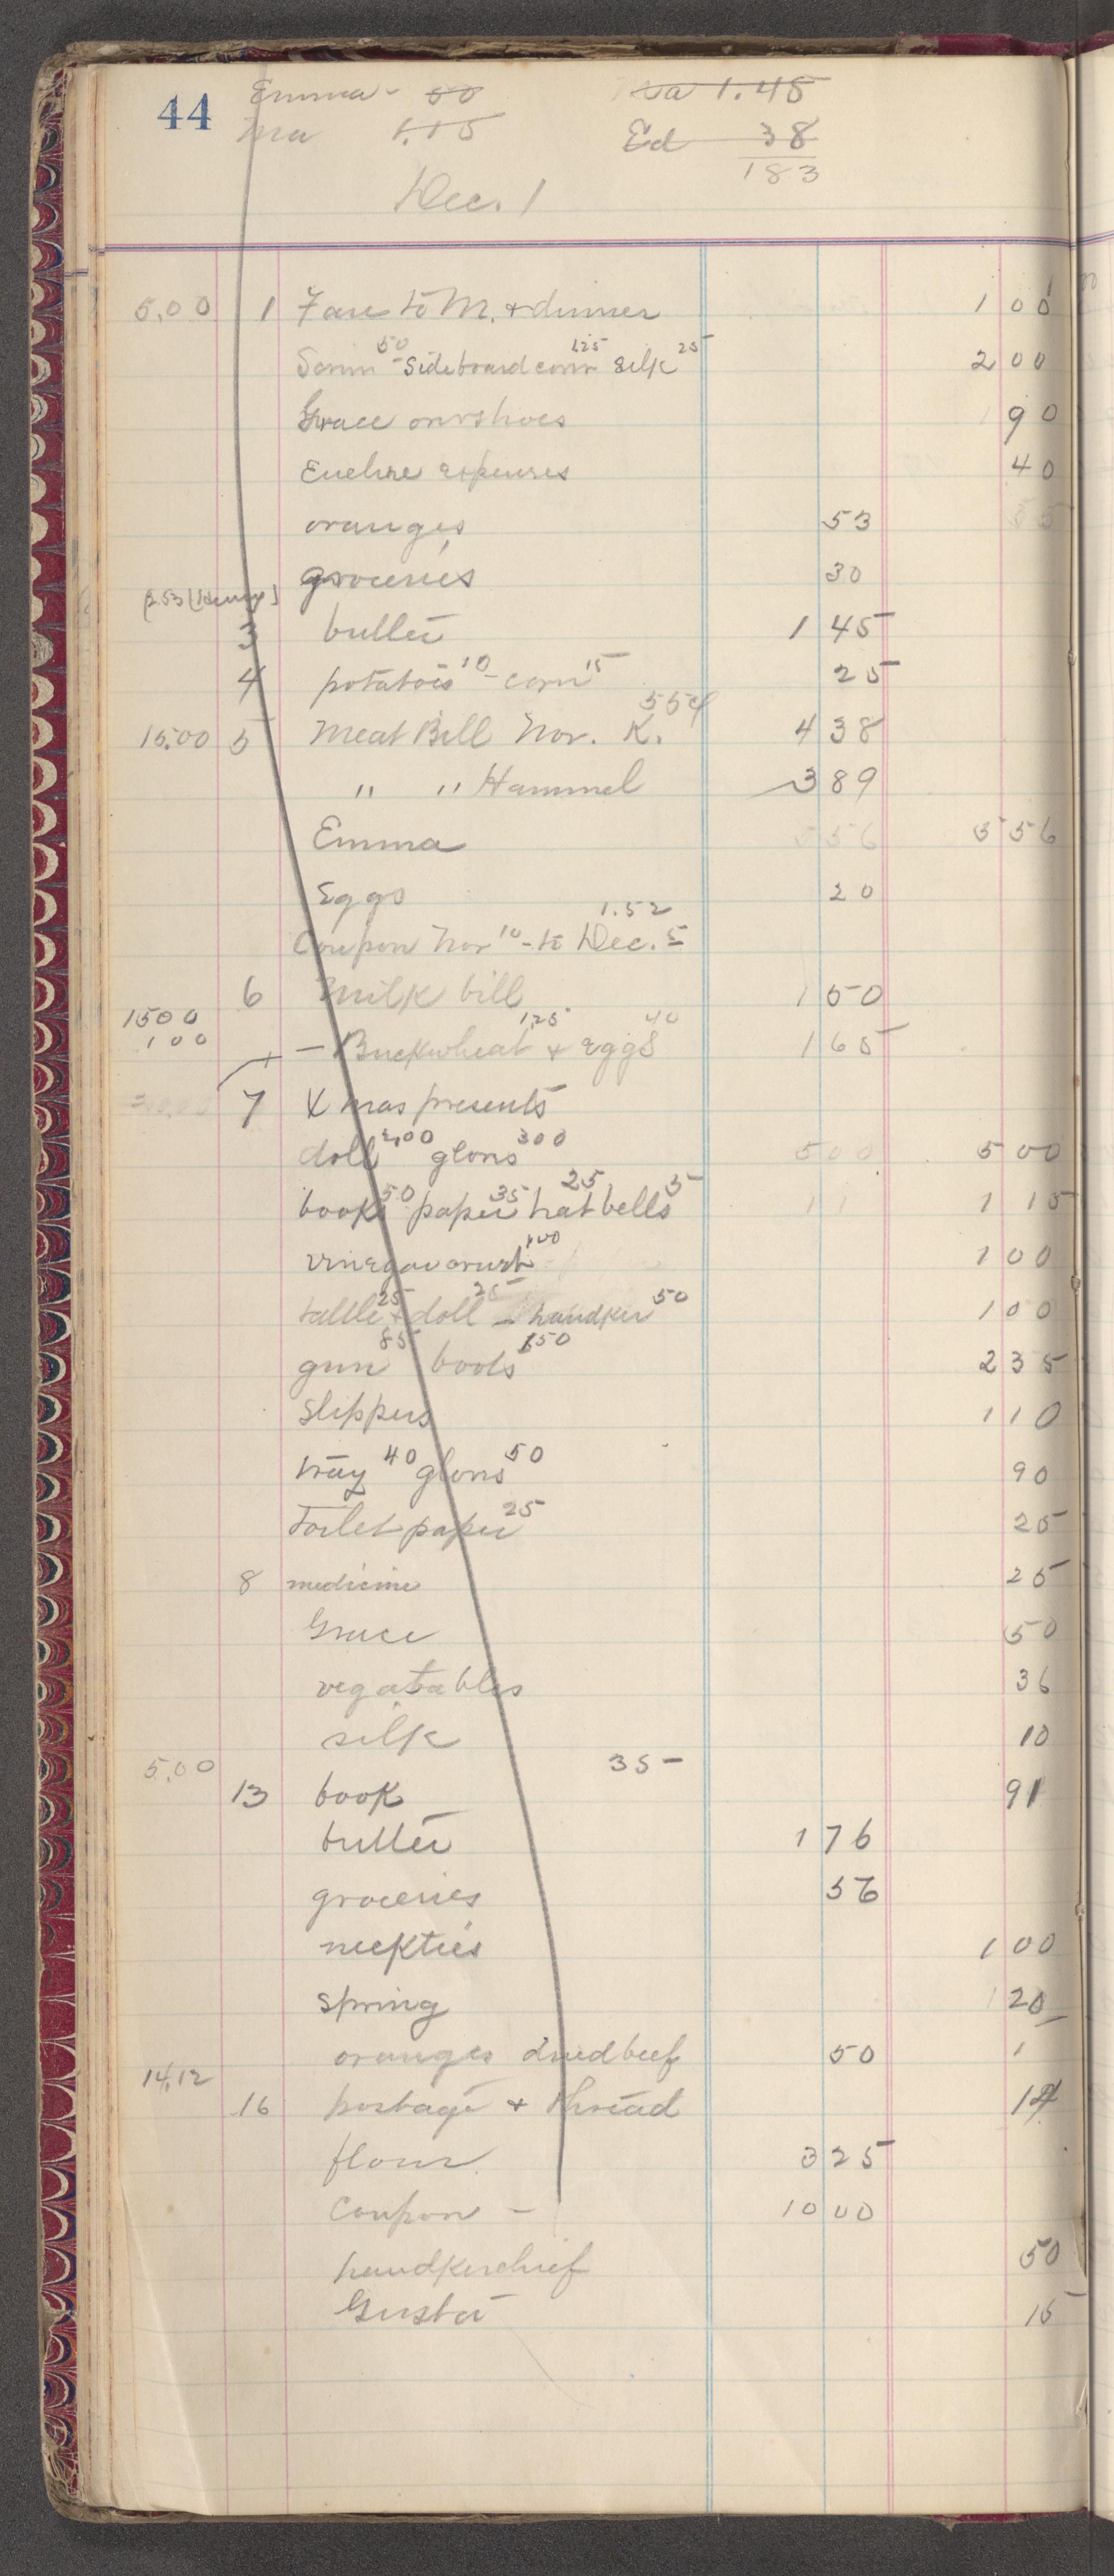 44
Emma - 50
Ma 1.15
Ma 1.45
Ed 38
183
Dec. 1
5.00 1 Fare to M. + dinner 1 00
Scrim 50 - Sideboard cover 125 silk 25 2 00
Grace overshoes 90
Eveline expenses 40
oranges 53
groceries 30
2.53
3 butter 1 45
4 potatoes 10 - corn 15 25
554
15.00 5 Meat Bill Nov. K. 4 38
" " Hammel 3 89
Emma 5 56
Eggs 20
1.52
Coupon Nov 10 - to Dec. 5
6 Milk bill 1 50
1500
100
+ - Buckwheat 1.25 + eggs 40 1 65
7 Xmas presents
doll 2,00 glovs 300 5 00
books 50 paper 35 hat 25 bells 5 1 15
vinegar cruet 100 1 00
rattle 25 + doll 25 - handker 50 1 00
gun 85 boots 150 2 35
slippers 1 10
tray 40 glovs 50 90
Toilet paper 25 25
8 medicine 25
Grace 50
vegatables 36
silk 10
5.00 35 -
13 book 91
butter 1 76
groceries 56
neckties 1 00
spring 20
oranges dried beef 50
14,12
16 postage + thread 14
flour 3 25
Coupon - 10 00
handkerchief 50
Gustav 15